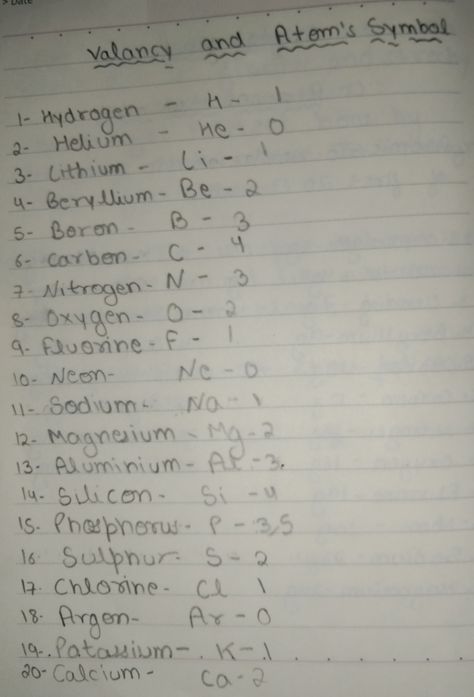 Date
Valancy and Atom's Symbol
1- Hydrogen - H - 1
2- Helium - He - 0
3- Lithium - Li - 1
4- Beryllium - Be - 2
5- Boron - B - 3
6- Carbon - C - 4
7- Nitrogen - N - 3
8- Oxygen - O - 2
9- Fluorine - F - 1
10- Neon- Ne - 0
11- Sodium- Na - 1
12- Magnesium - Mg - 2
13- Aluminium - Al - 3.
14- Silicon- Si - 4
15- Phosphorus - P - 3,5
16- Sulphur- S - 2
17- Chlorine - Cl 1
18- Argon- Ar - 0
19-. Patassium - . K - 1
20- Calcium - Ca - 2